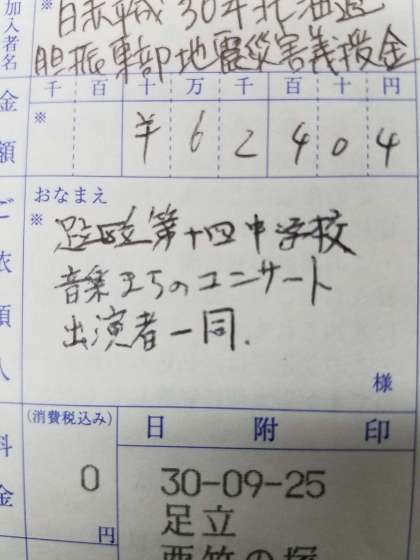 加入者名
※ 日赤平成30年北海道
胆振東部地震災害義援金
金額
千 百 十 万 千 百 十 円
※ ¥ 6 2 4 0 4
ご依頼人
おなまえ
※ 足立区立第十四中学校
音楽まちのコンサート
出演者一同.
様
料金
(消費税込み)
0
円
日 附 印
30-09-25
足立
西竹の塚